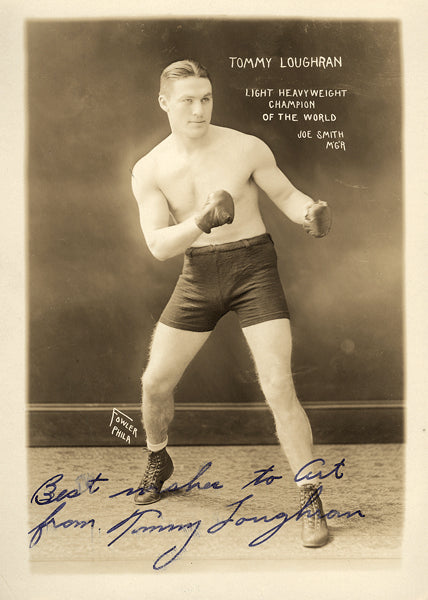 TOMMY LOUGHRAN
LIGHT HEAVYWEIGHT
CHAMPION
OF THE WORLD
JOE SMITH
M'G'R
FOWLER
PHILA
Best wishes to Art
from Tommy Loughran